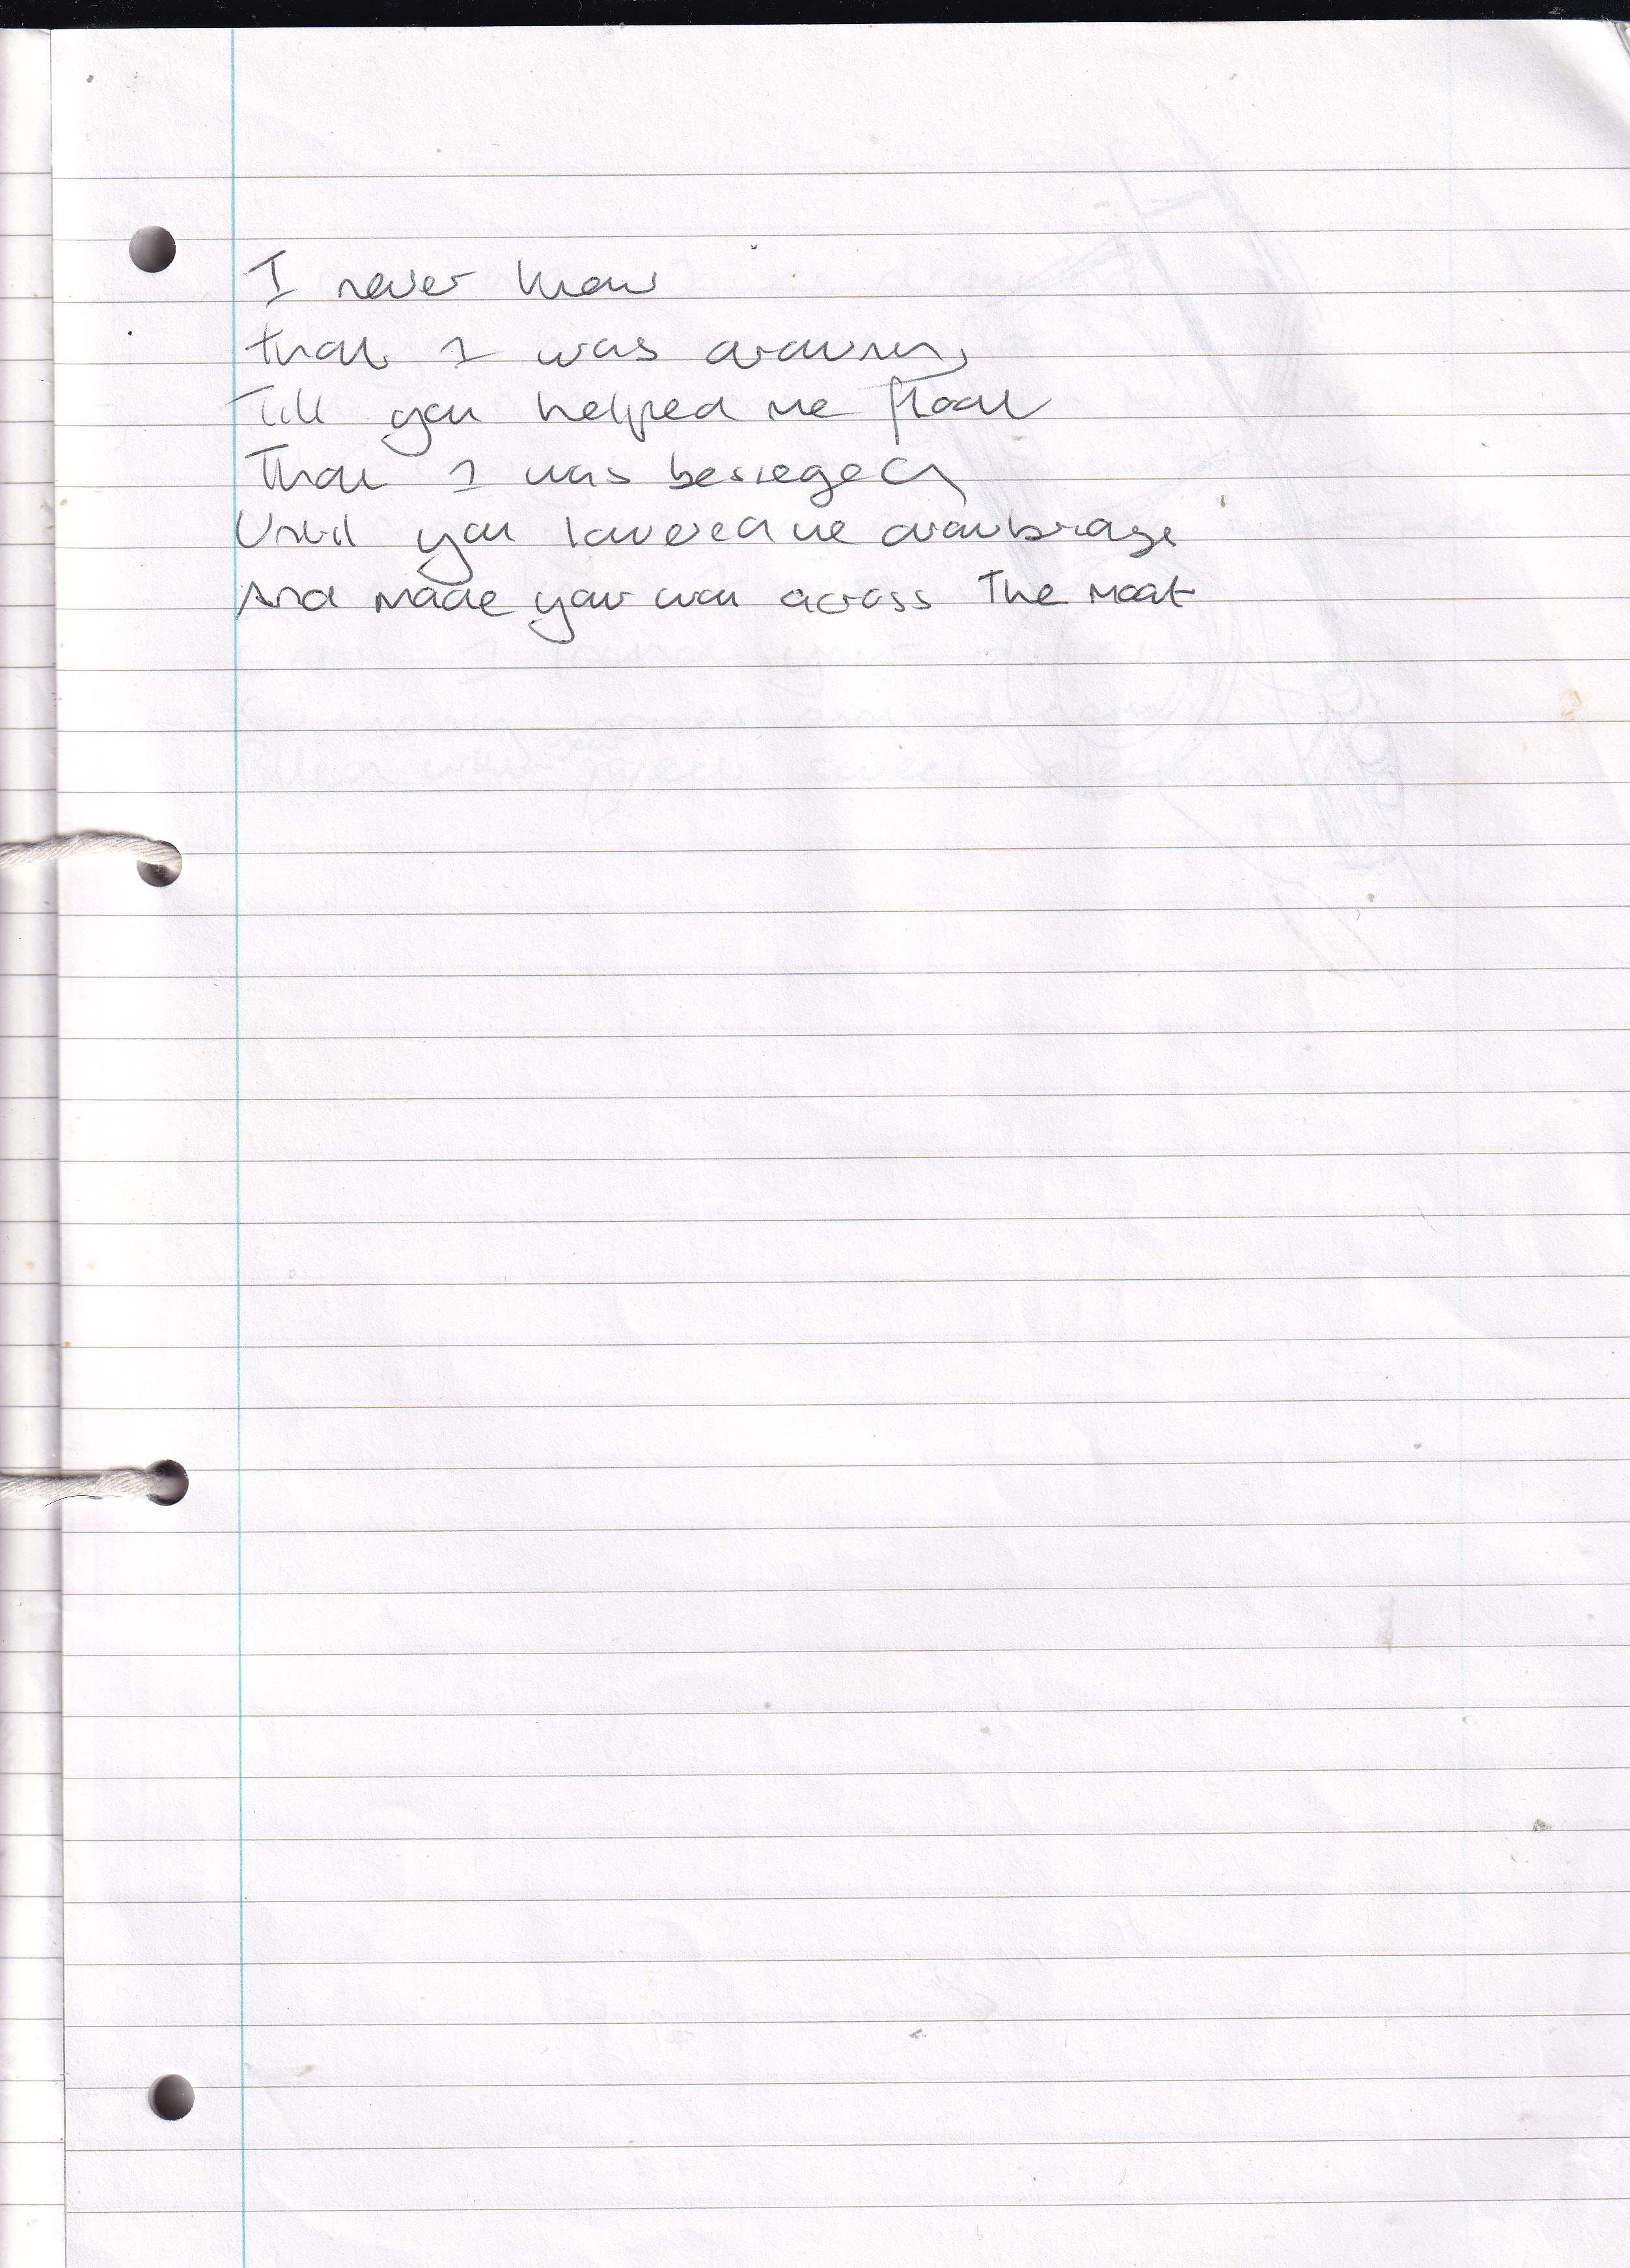 I never knew
that I was drowning
Till you helped me float
That I was besieged
Until you lowered the drawbridge
And made your way across The Moat